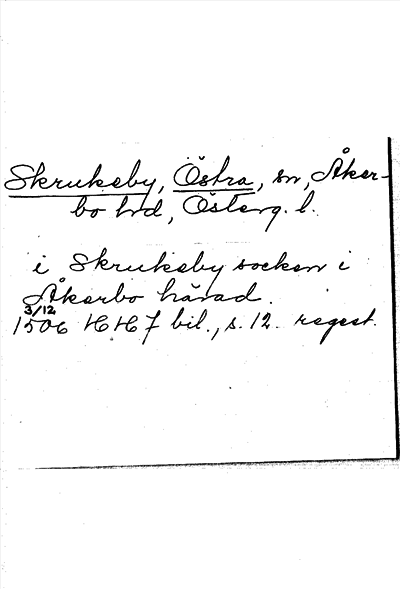 Skrukeby, Östra, sn, Åker-
bo hd, Österg. l.
i Skrukeby socken i
Åkerbo härad.
3/12
1506 HH 7 bil., s. 12. regest.